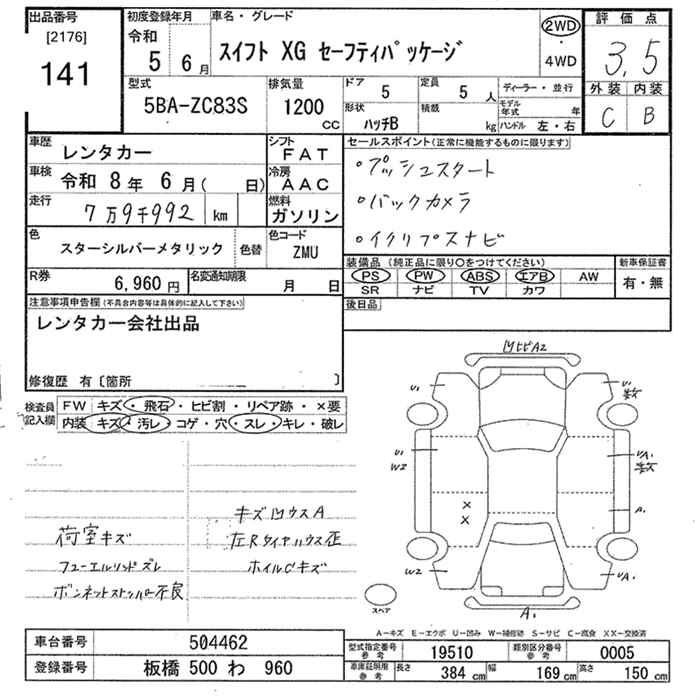 出品番号
[2176]
141
初度登録年月
令和
5 6月
車名・グレード
スイフト XG セーフティパッケージ
2WD
・
4WD
評価点
3.5
外装 内装
C B
型式
5BA-ZC83S
排気量
1200
CC
ドア
5
定員
5 人
形状
ハッチB
積載
kg
ディーラー・並行
モデル年式 年
ハンドル 左・右
車歴
レンタカー
シフト
FAT
車検 令和 8年 6月( 日)
冷房
AAC
走行
7万9千992 km
燃料
ガソリン
色
スターシルバーメタリック
色替
色コード
ZMU
R券
6,960円
名変通知期限
月 日
セールスポイント(正常に機能するものに限ります)
・プッシュスタート
・バックカメラ
・イクリプスナビ
装備品(純正品に限り○をつけてください)
PS PW ABS エアB AW
SR ナビ TV カワ
新車保証書
有・無
後日品
注意事項申告欄(不具合内容等は具体的に記入して下さい)
レンタカー会社出品
修復歴 有〔箇所 〕
検査員記入欄
FW キズ・飛石・ヒビ割・リペア跡・×要
内装 キズ・汚レ・コゲ・穴・スレ・キレ・破レ
キズ凹ウスA
荷室キズ
左Rタイヤハウス歪
フューエルリッドズレ
ホイルCキズ
ボンネットストッパー不良
凹ヒビA2
U1
U1
数
U1
W2
UA1
数
×
×
A1
W2
UA1
スペア
A1
A-キズ E-エクボ U-凹み W-補修跡 S-サビ C-腐食 XX-交換済
車台番号
504462
登録番号
板橋 500 わ 960
型式指定番号
参考
19510
類別区分番号
参考
0005
車庫証明用
参考
長さ
384 cm
幅
169 cm
高さ
150 cm